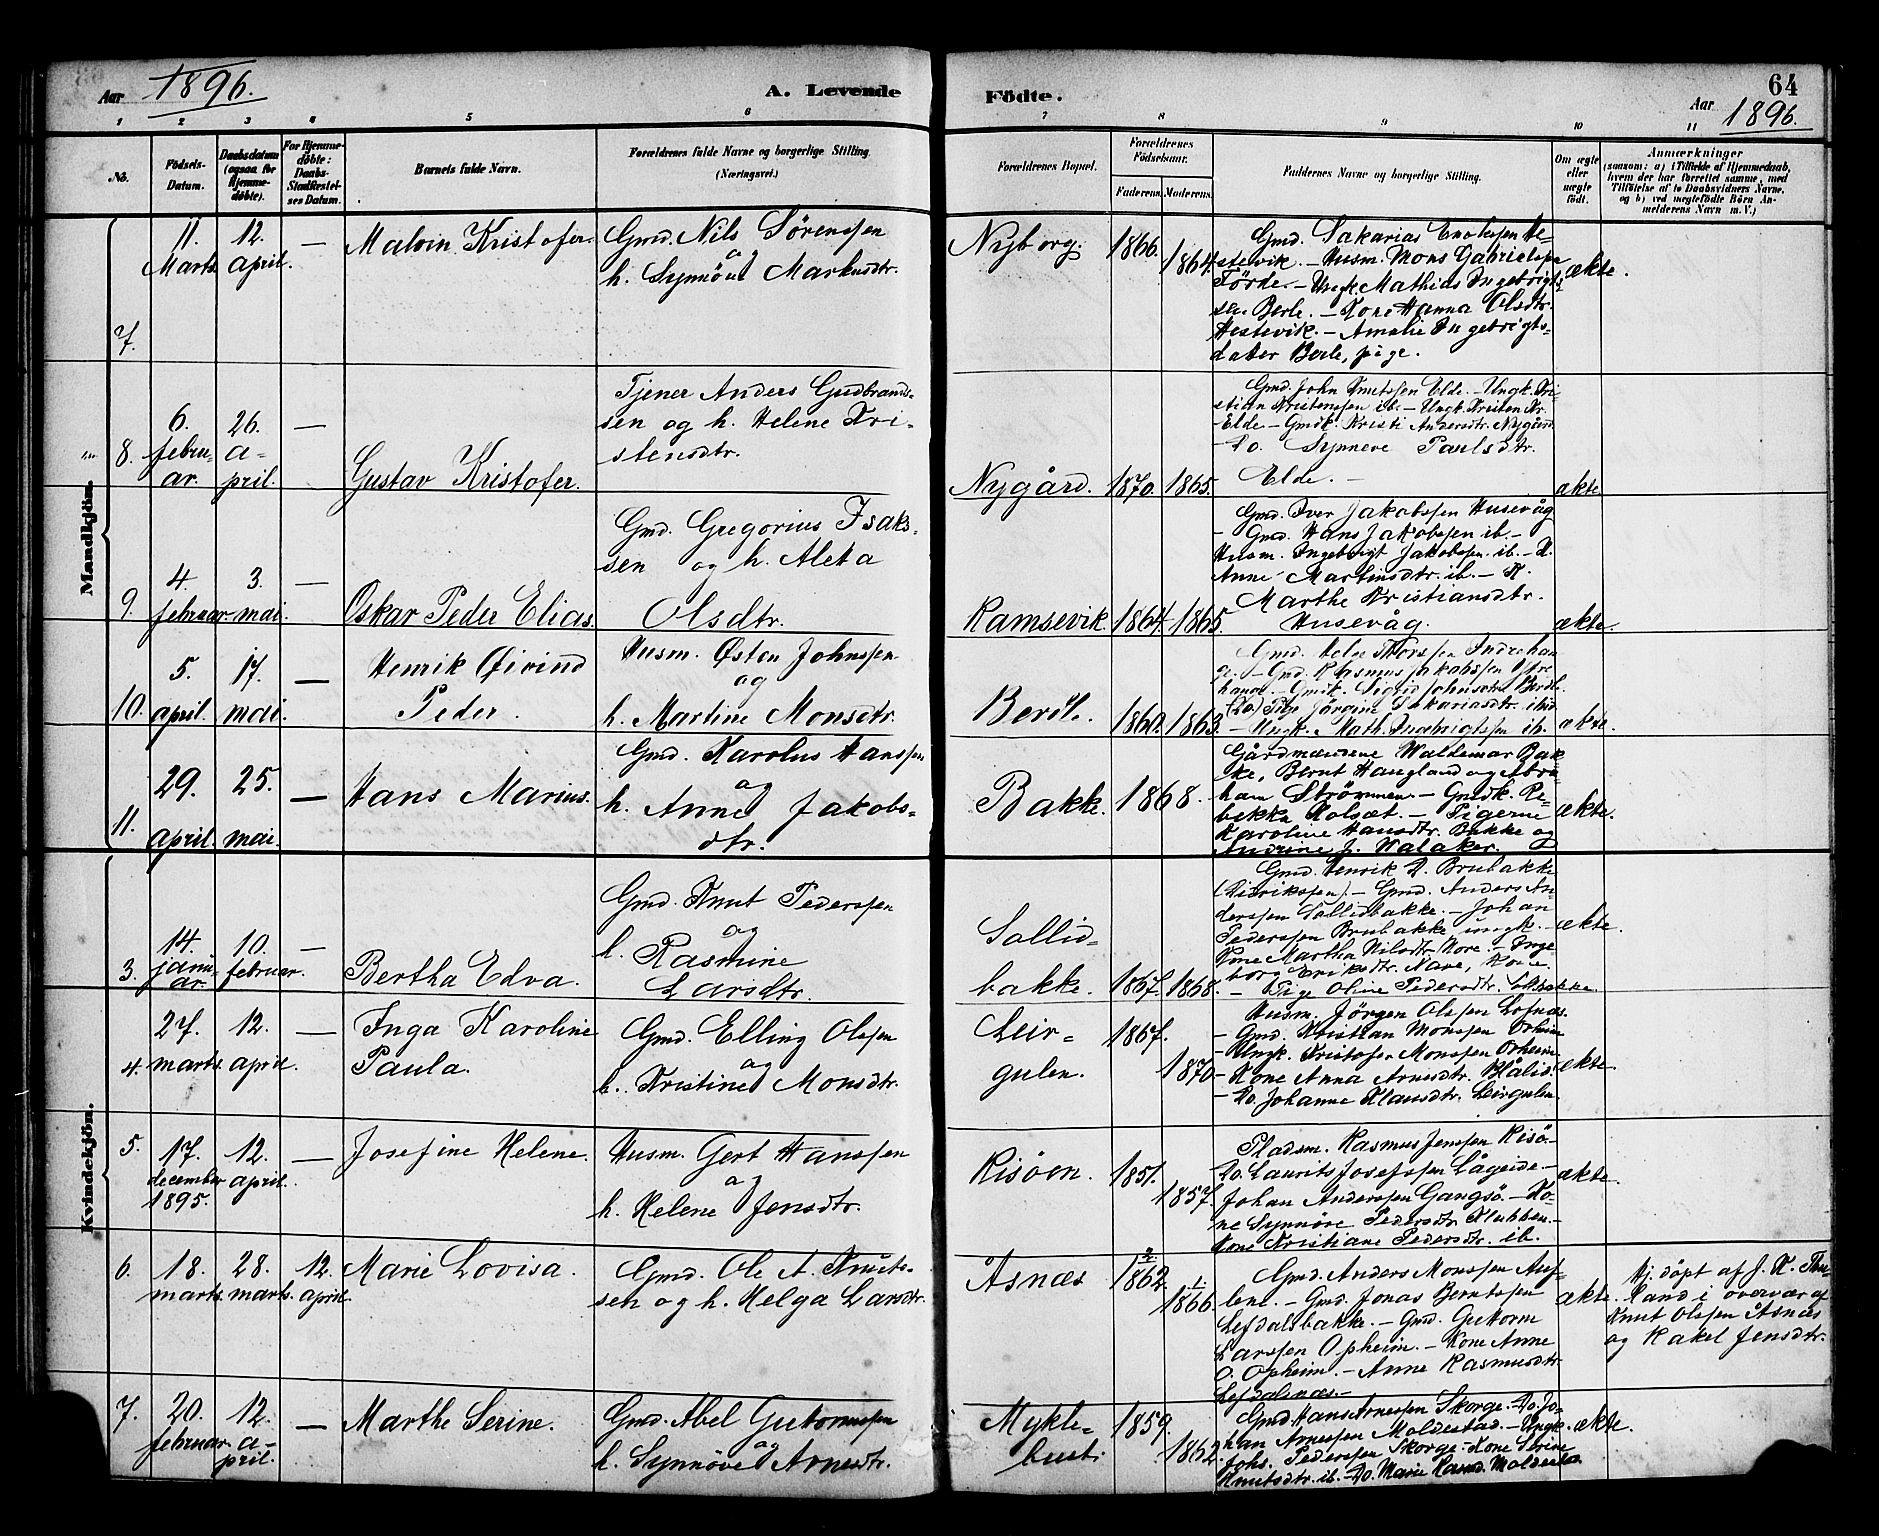 Aar 1896.
A. Levende
Födte.
64
Aar 1896.
1 2 3 4 5 6 7 8 9 10 11
No.
Födsels-Datum.
Daabsdatum (ogsaa for Hjemme-döbte).
For Hjemme-döbte: Daabs-Stadfæstel-ses Datum.
Barnets fulde Navn.
Forældrenes fulde Navne og borgerlige Stilling. (Næringsvei.)
Forældrenes Bopæl.
Forældrenes Födselsaar.
Faderens. Moderens.
Faddernes Navne og borgerlige Stilling.
Om ægte eller uægte födt.
Anmærkninger
(saasom: a) i Tilfælde af Hjemmedaab,
hvem der har forrettet samme, med
Tilföielse af to Daabsvidners Navne.
og b) ved uægtefödte Börn An-
melderens Navn m. V.)
Mandkjön.
7. 11. Marts 12. april. — Malvin Kristofer. Gmd. Nils Sørenssen
og
h. Synnöve Markusdtr.
Nyborg. 1866. 1864.
Gmd. Sakarias Enokssen He-
stevik. — Husm. Mons Gabrielsen
Förde. — Ungk. Mathias Ingebrigt-
sen Berle. — Kone Hanna Olsdtr.
Hestevik. — Amalie Ingebrigts-
dater Berle, pige.
ækte.
8. 6. februar. 26. april. — Gustav Kristofer.
Tjener Anders Gudbrands-
sen og h. Helene Kri-
stensdtr.
Nygård. 1870. 1865.
Gmd. John Knutssen Elde. — Ungk. Kri-
stian Kristenssen ib. — Ungk. Kristen Kr.
Elde — Gmdk. Kristi Andersdtr. Nygård
— Do. Synneve Paulsdtr.
Elde. —
ækte
9. 4. februar. 3. mai. — Oskar Peder Elias.
Gmd. Gregorius Isaks-
sen og h. Aleta
Olsdtr.
Ramsevik. 1864. 1865.
Gmd. Iver Jakobssen Husevåg
— Gmd. Hans Jakobssen ib. —
Husm. Ingebrigt Jakobssen ib. — K.
Anne Martinsdtr. ib. — K.
Marthe Kristiansdtr.
Husevåg.
ækte.
10. 5. april. 17. mai. — Henrik Øivind
Peder.
Husm. Østen Johnssen
og
h. Martine Monsdtr.
Berdl. 1860. 1863.
Gmd. Thorssen Indrehau
ge. — Gmd. Rasmus Jakobssen
hauge. — Gmdk. Sigrid Johnsdtr. Berdl.
(Do) Pige Jörgine Sakariasdtr. ibid
— Ungk. Math. Ingebrigtssen ib.
ækte.
11. 29. april. 25. mai. — Hans Marius.
Gmd. Karolus Hanssen
og
h. Anne Jakobs-
dtr.
Bakke. 1868.
Gårdmændene Waldemar Bak
ke, Bernt Haugland og Abra-
ham Strömmen. — Gmdk. Re-
bekka Kolsæt. — Pigerne
Karoline Hansdtr. Bakke og
Andrine J. Walaker.
ækte.
Kvindekjön.
3. 14. januar. 10. februar. — Bertha Edva.
Gmd. Knut Pederssen
og
h. Rasmine
Larsdtr.
Sollid-
bakke. 1867. 1868.
Gmd. Henrik D. Brubakke
(Didrikssen). — Gmd. Anders An-
derssen Sollidbakke. — Johan
Pederssen Brubakke ungk. —
Kone Martha Nilsdtr. Nore. — Inge
borg Eriksdtr. Nave, Kone.
— Pige Oline Pedersdtr. Sollidbakke.
ækte.
4. 27. marts. 12. april. — Inga Karoline
Paula.
Gmd. Elling Olssen
og
h. Kristine Monsdtr.
Leir-
gulen. 1867. 1870
Husm. Jörgen Olssen Lofnæs.
— Gmd. Kristian Monssen Orheim
— Ungk. Kristofer Monssen Orheim.
— Kone Anna Arnesdtr.
— Do. Johanne Klausdtr. Leirgulen.
ækte.
5. 17. december 1895. 12. april. — Josefine Helene.
Husm. Gert Hanssen
og
h. Helene Jensdtr.
Risöen. 1851. 1857.
Pladsm. Rasmus Jenssen Risö.
Do. Laurits Josefssen Lågeide —
Johan Anderssen Gangsö. — Ko-
ne Synnöve Pedersdtr. Klubben. —
Kone Kristiane Pedersdtr. ib.
ækte.
6. 18. marts. 28. marts. 12. april. Marie Lovisa.
Gmd. Ole A. Knuts-
sen og h. Helga Larsdtr.
Åsnæs 2. 1862. 1. 1866.
Gmd. Anders Monssen Auf-
lene. — Gmd. Jonas Berntssen
Lefdalsbakke. — Gmd. Gutorm
Larssen Opheim. — Kone Anne
O. Opheim. — Anne Rasmusdtr.
Lefdalsnæs. —
ækte.
Hj. döpt af J. K.
i overvær af
Knut Olssen Åsnæs
og Rakel Jensdtr.
7. 20. februar. 12. april. — Marthe Serine.
Gmd. Abel Gutormssen
og
h. Synnöve Arnesdtr.
Mykle-
bust. 1859. 1862.
Gmd Hans Arnessen Skorge. Do. Jo-
han Arnessen Maldestad. — Ungk.
Johs. Pederssen Skorge. — Kone Serine
Knutsdtr. ib. — Do. Marie Rasmd. Maldestad
ækte.